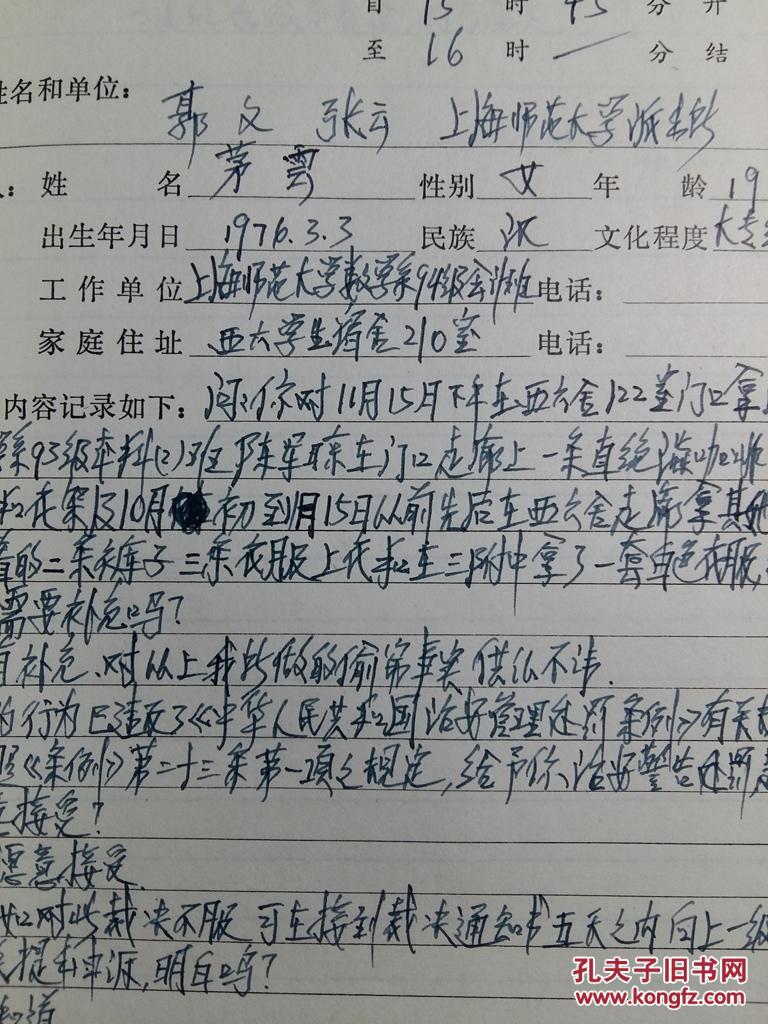 自 15 时 45 分 开
至 16 时 — 分 结
姓名和单位： 郭文 张云 上海师范大学派出所
人： 姓 名 茅雲 性别 女 年 龄 19
出生年月日 1976.3.3 民族 汉 文化程度 大专
工作单位 上海师范大学数学系94级会计班 电话：
家庭住址 西六学生宿舍210室 电话：
内容记录如下： 问：你对11月15日下午在西六舍122室门口拿
系93级本科(2)班 陈 在门口走廊上一条直统
和衣架及10月 初到11月15日以前先后在西六舍走廊拿其他
着的二条裤子三条衣服上代 在三附中拿了一套 色衣服
需要补充吗?
有补充、对以上我所做的偷窃事实供认不讳.
的行为已违反了《中华人民共和国治安管理处罚条例》有关规
照《条例》第二十三条第一项之规定,给予你治安警告处罚 意
意接受?
愿意接受.
如对此裁决不服 可在接到裁决通知书五天之内向上一级
关提出申诉,明白吗?
知道
孔夫子旧书网
www.kongfz.com